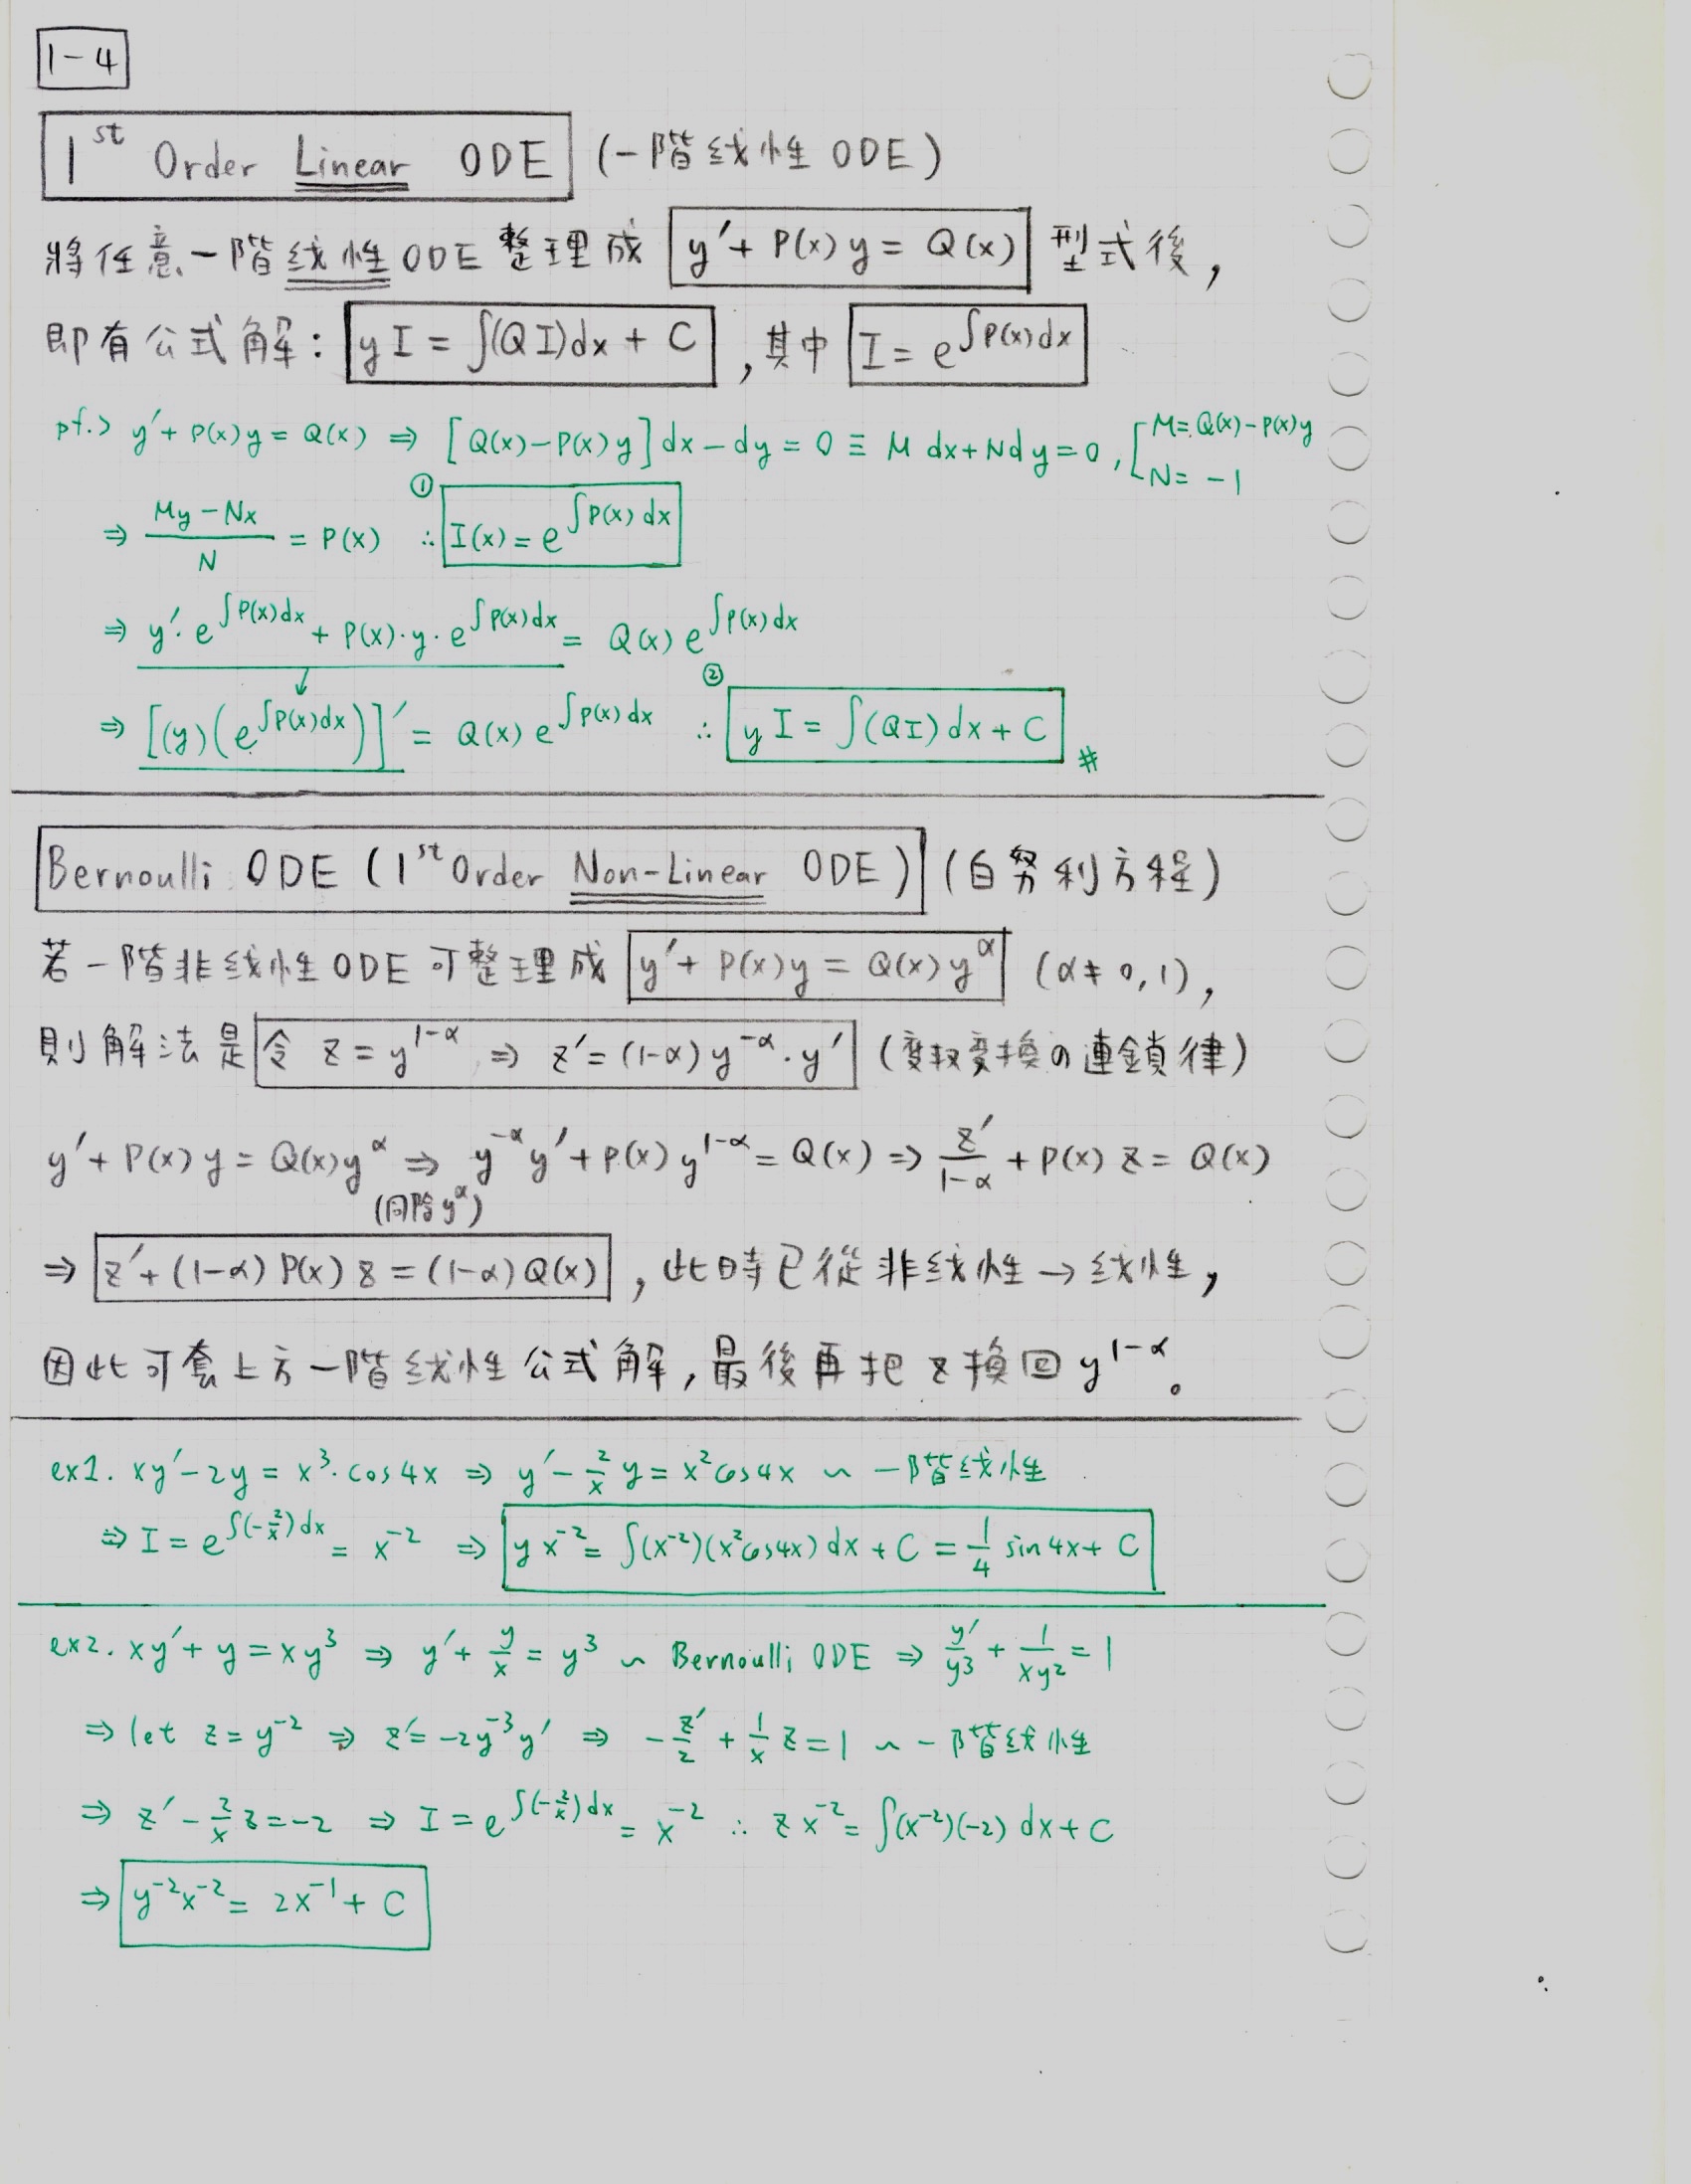 1-4
1st Order Linear ODE (一階线性 ODE)
將任意一階线性 ODE 整理成 y′ + P(x) y = Q(x) 型式後,
即有公式解: y I = ∫(Q I)dx + C , 其中 I = e^∫P(x)dx
pf.> y′ + P(x) y = Q(x) ⇒ [Q(x) − P(x) y] dx − dy = 0 ≡ M dx + N dy = 0 , [M = Q(x) − P(x) y
N = −1
⇒ (My − Nx)/N = P(x) ∴ ① I(x) = e^∫P(x) dx
⇒ y′· e^∫P(x)dx + P(x)· y · e^∫P(x)dx = Q(x) e^∫P(x)dx
⇒ [(y)(e^∫P(x)dx)]′ = Q(x) e^∫P(x) dx ∴ ② y I = ∫(QI) dx + C #
Bernoulli ODE (1st Order Non-Linear ODE) (白努利方程)
若一階非线性 ODE 可整理成 y′ + P(x)y = Q(x) y^α (α ≠ 0, 1),
則解法是 令 z = y^(1−α) ⇒ z′ = (1−α) y^(−α) · y′ (変数変換の連鎖律)
y′ + P(x) y = Q(x)y^α ⇒ y^(−α) y′ + P(x) y^(1−α) = Q(x) ⇒ z′/(1−α) + P(x) z = Q(x)
(同除 y^α)
⇒ z′ + (1−α) P(x) z = (1−α) Q(x) , 此時已從非线性 → 线性,
因此可套上方一階线性公式解, 最後再把 z 換回 y^(1−α)。
ex1. xy′ − 2y = x³· cos4x ⇒ y′ − (2/x) y = x² cos4x ~ 一階线性
⇒ I = e^∫(−2/x) dx = x⁻² ⇒ y x⁻² = ∫(x⁻²)(x²cos4x) dx + C = (1/4) sin 4x + C
ex2. xy′ + y = xy³ ⇒ y′ + y/x = y³ ~ Bernoulli ODE ⇒ y′/y³ + 1/(xy²) = 1
⇒ let z = y⁻² ⇒ z′ = −2y⁻³y′ ⇒ −z′/2 + (1/x) z = 1 ~ 一階线性
⇒ z′ − (2/x) z = −2 ⇒ I = e^∫(−2/x) dx = x⁻² ∴ z x⁻² = ∫(x⁻²)(−2) dx + C
⇒ y⁻²x⁻² = 2x⁻¹ + C